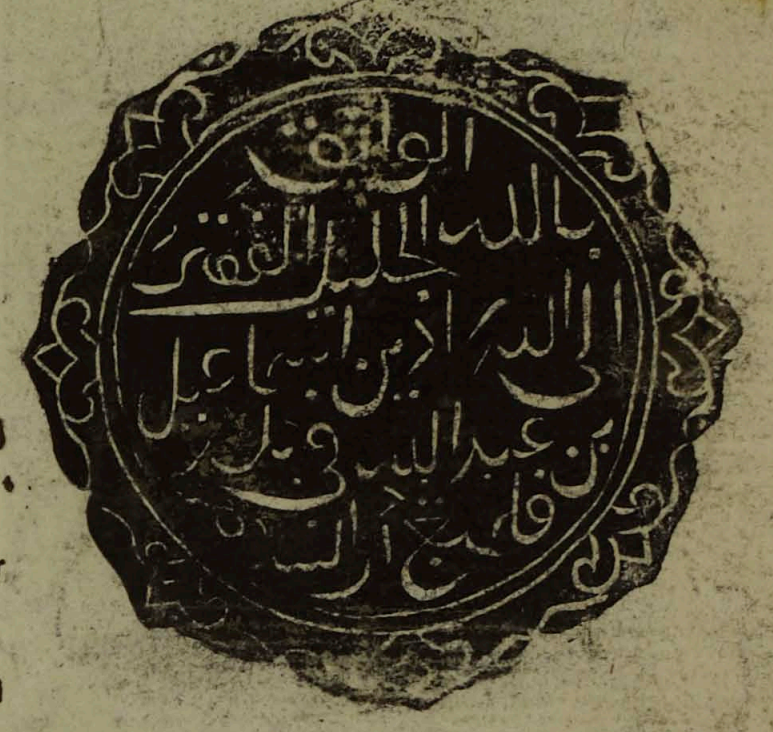 الواثق
بالله الجليل الفقير
الى الله ادين اسماعيل
بن عبد الله في بلد